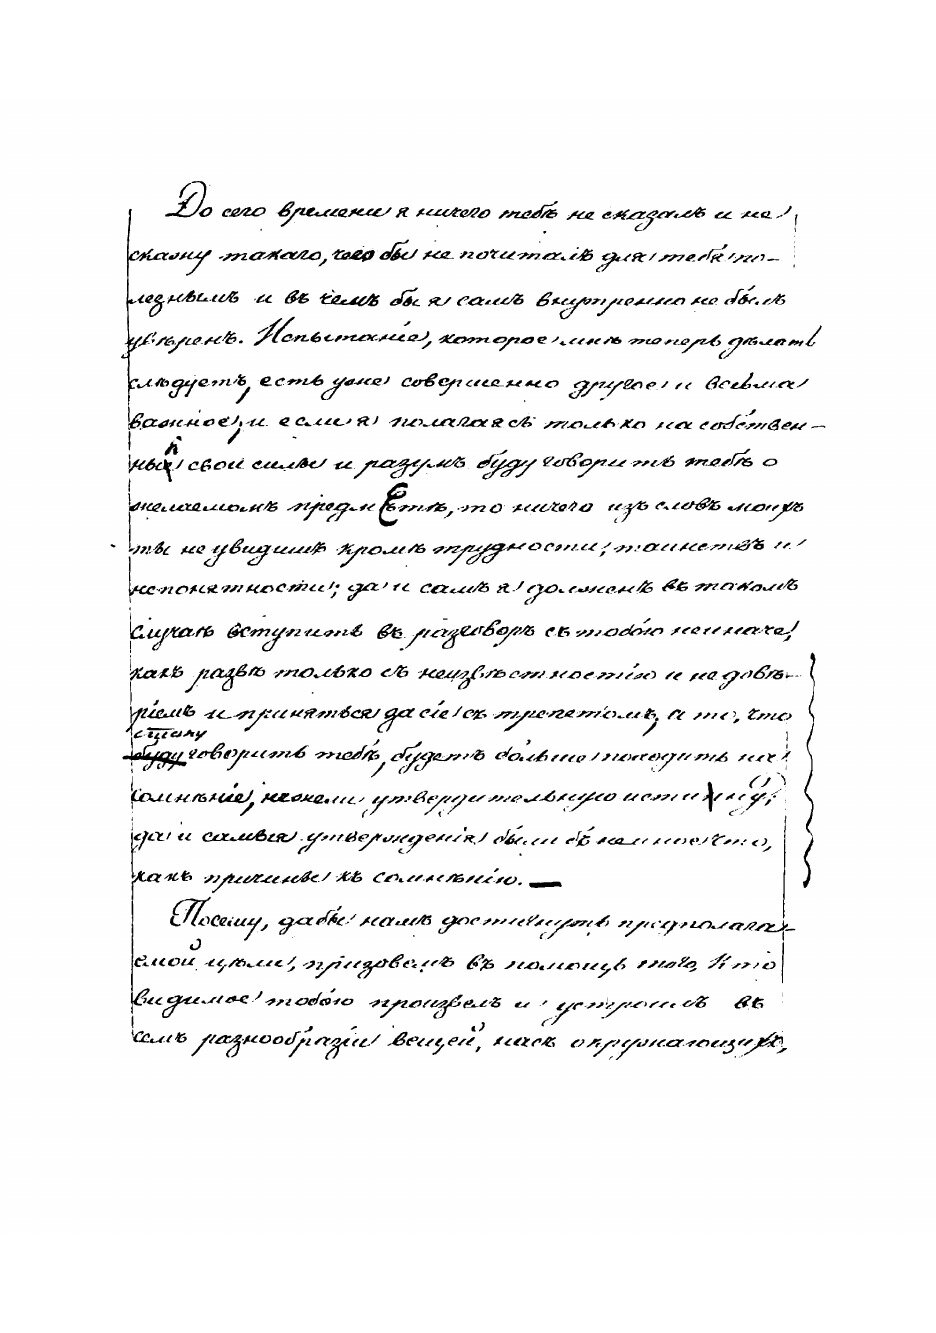 До сего времени я ничего тебѣ не сказалъ и не
скажу такаго, чего бы не почиталъ для тебя по-
лезнымъ и въ чемъ бы я самъ внутренно не былъ
увѣренъ. Испытаніе, которое мнѣ теперь дѣлать
слѣдуетъ, есть уже совершенно другое и весьма
важное, и если я полагаясь только на собствен-
ныя свои силы и разумъ буду говорить тебѣ о
желаемомъ предмѣтѣ, то ничего изъ словъ моихъ
ты не увидишь кромѣ трудности, таинствъ и
непонятности; да и самъ я долженъ въ такомъ
случаѣ вступить въ разговоръ съ тобою не иначе,
какъ развѣ только съ неизвѣстностію и недовѣ-
ріемъ и приняться да сіе съ трепетомъ, а то, что
стану
буду говорить тебѣ, будетъ больше походить на
сомнѣніе, нежели утвердительную истинну;
да и самыя утвержденія были бъ не иное что,
какъ причины къ сомнѣнію.
Посему, дабы намъ достигнуть предполага-
емой цѣли, призовемъ въ помощь того, Кто
видимое тобою произвелъ и устроилъ въ
семъ разнообразіи вещей, насъ окружающихъ,